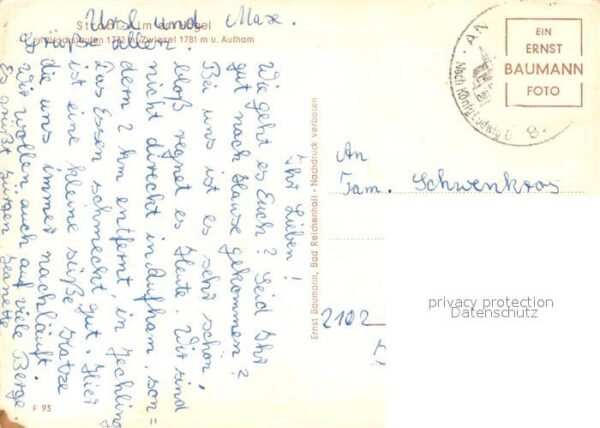 Ihr Lieben!
Wie geht es Euch? Seid Ihr
gut nach Hause gekommen?
Bei uns ist es sehr schön,
bloß regnet es Heute. Wir sind
nicht direkt in Aufham, son=
dern 2 km entfernt, in Jechling
Das Essen schmeckt gut. Hier
ist eine kleine süße Katze
die uns immer nachläuft.
Wir wollen auch auf viele Berge.
Es grüßt Jürgen Jeanette
Grüße allen
Ursl und Maxe.
1772 m, Zwiesel 1781 m u. Aufham
F 93
Ernst Baumann, Bad Reichenhall - Nachdruck verboten
EIN
ERNST
BAUMANN
FOTO
AN
An
Fam. Schwenkros
2102
privacy protection
Datenschutz